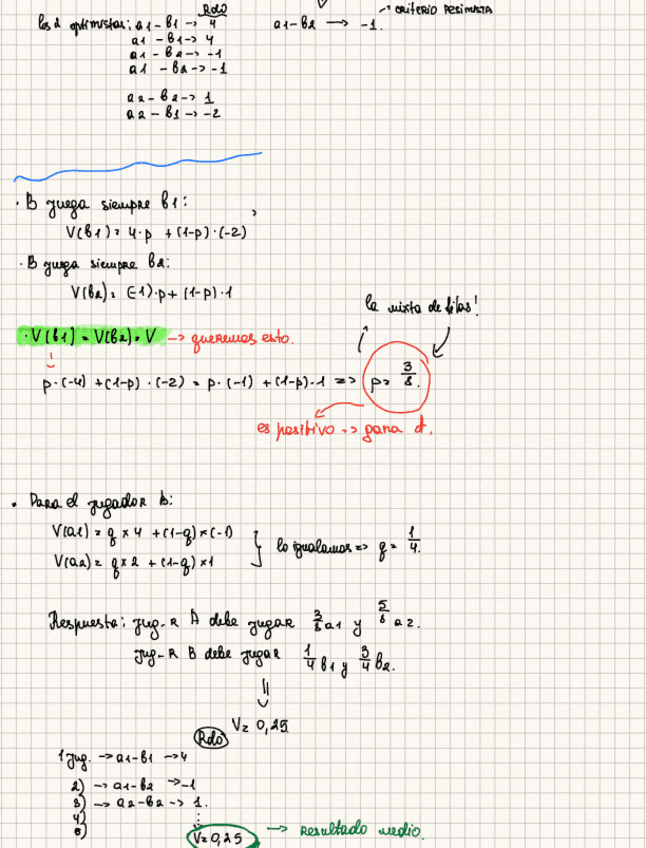 Rdo
los 2 optimistas: a1 - b1 -> 4 a1-b2 -> -1. -> CRITERIO PESIMISTA
a1 - b1 -> 4
a1 - b2 -> -1
a1 - b2 -> -1
a2 - b2 -> 1
a2 - b1 -> -2
· B juega siempre b1:
V(b1) = 4·p + (1-p)·(-2)
· B juega siempre b2:
V(b2) = (-1)·p + (1-p)·1
la mixta de filas!
· V(b1) = V(b2) = V -> queremos esto.
p·(-4) + (1-p)·(-2) = p·(-1) + (1-p)·1 => p = 3/8.
es positivo -> gana A.
· Para el jugador B:
V(a1) = q x 4 + (1-q) x (-1)
V(a2) = q x 2 + (1-q) x 1
lo igualamos => q = 1/4.
Respuesta: jug-R A debe jugar 3/8 a1 y 5/8 a2.
jug-R B debe jugar 1/4 b1 y 3/4 b2.
V = 0,25
Rdo
1 jug. -> a1-b1 -> 4
2) -> a1-b2 -> -1
3) -> a2-b2 -> 1.
4)
5)
V = 0,25 -> Resultado medio.